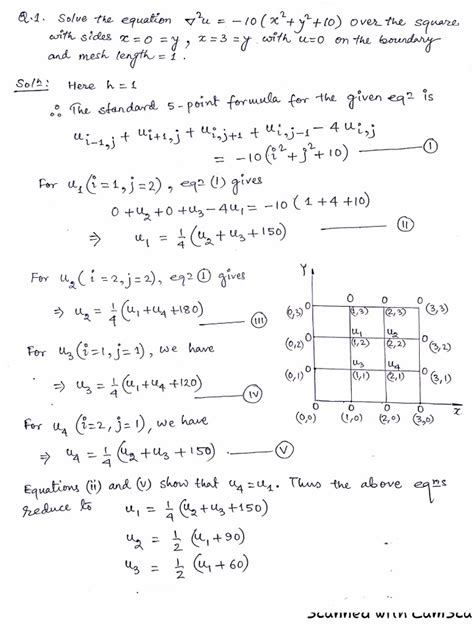 Q.1. Solve the equation ∇²u = -10(x²+y²+10) over the square
with sides x=0=y, x=3=y with u=0 on the boundary
and mesh length = 1.
Solⁿ: Here h=1
∴ The standard 5-point formula for the given eqⁿ is
u_{i-1,j} + u_{i+1,j} + u_{i,j+1} + u_{i,j-1} - 4u_{i,j}
= -10(i²+j²+10) — (I)
For u₁(i=1, j=2), eqⁿ (1) gives
0+u₂+0+u₃-4u₁ = -10(1+4+10)
⇒ u₁ = 1/4 (u₂+u₃+150) — (II)
For u₂(i=2, j=2), eqⁿ (1) gives
⇒ u₂ = 1/4 (u₁+u₄+180) — (III)
For u₃(i=1, j=1), we have
⇒ u₃ = 1/4 (u₁+u₄+120) — (IV)
For u₄ (i=2, j=1), we have
u₄ = 1/4 (u₂+u₃+150) — (V)
Y
0 0
(0,3) 0 (1,3) (2,3) 0 (3,3)
u₁ u₂
(0,2) 0 (1,2) (2,2) 0 (3,2)
u₃ u₄
(0,1) 0 (1,1) (2,1) 0 (3,1)
0 0 0 0 x
(0,0) (1,0) (2,0) (3,0)
Equations (ii) and (v) show that u₄=u₁. Thus the above eqns
reduce to u₁ = 1/4 (u₂+u₃+150)
u₂ = 1/2 (u₁+90)
u₃ = 1/2 (u₁+60)